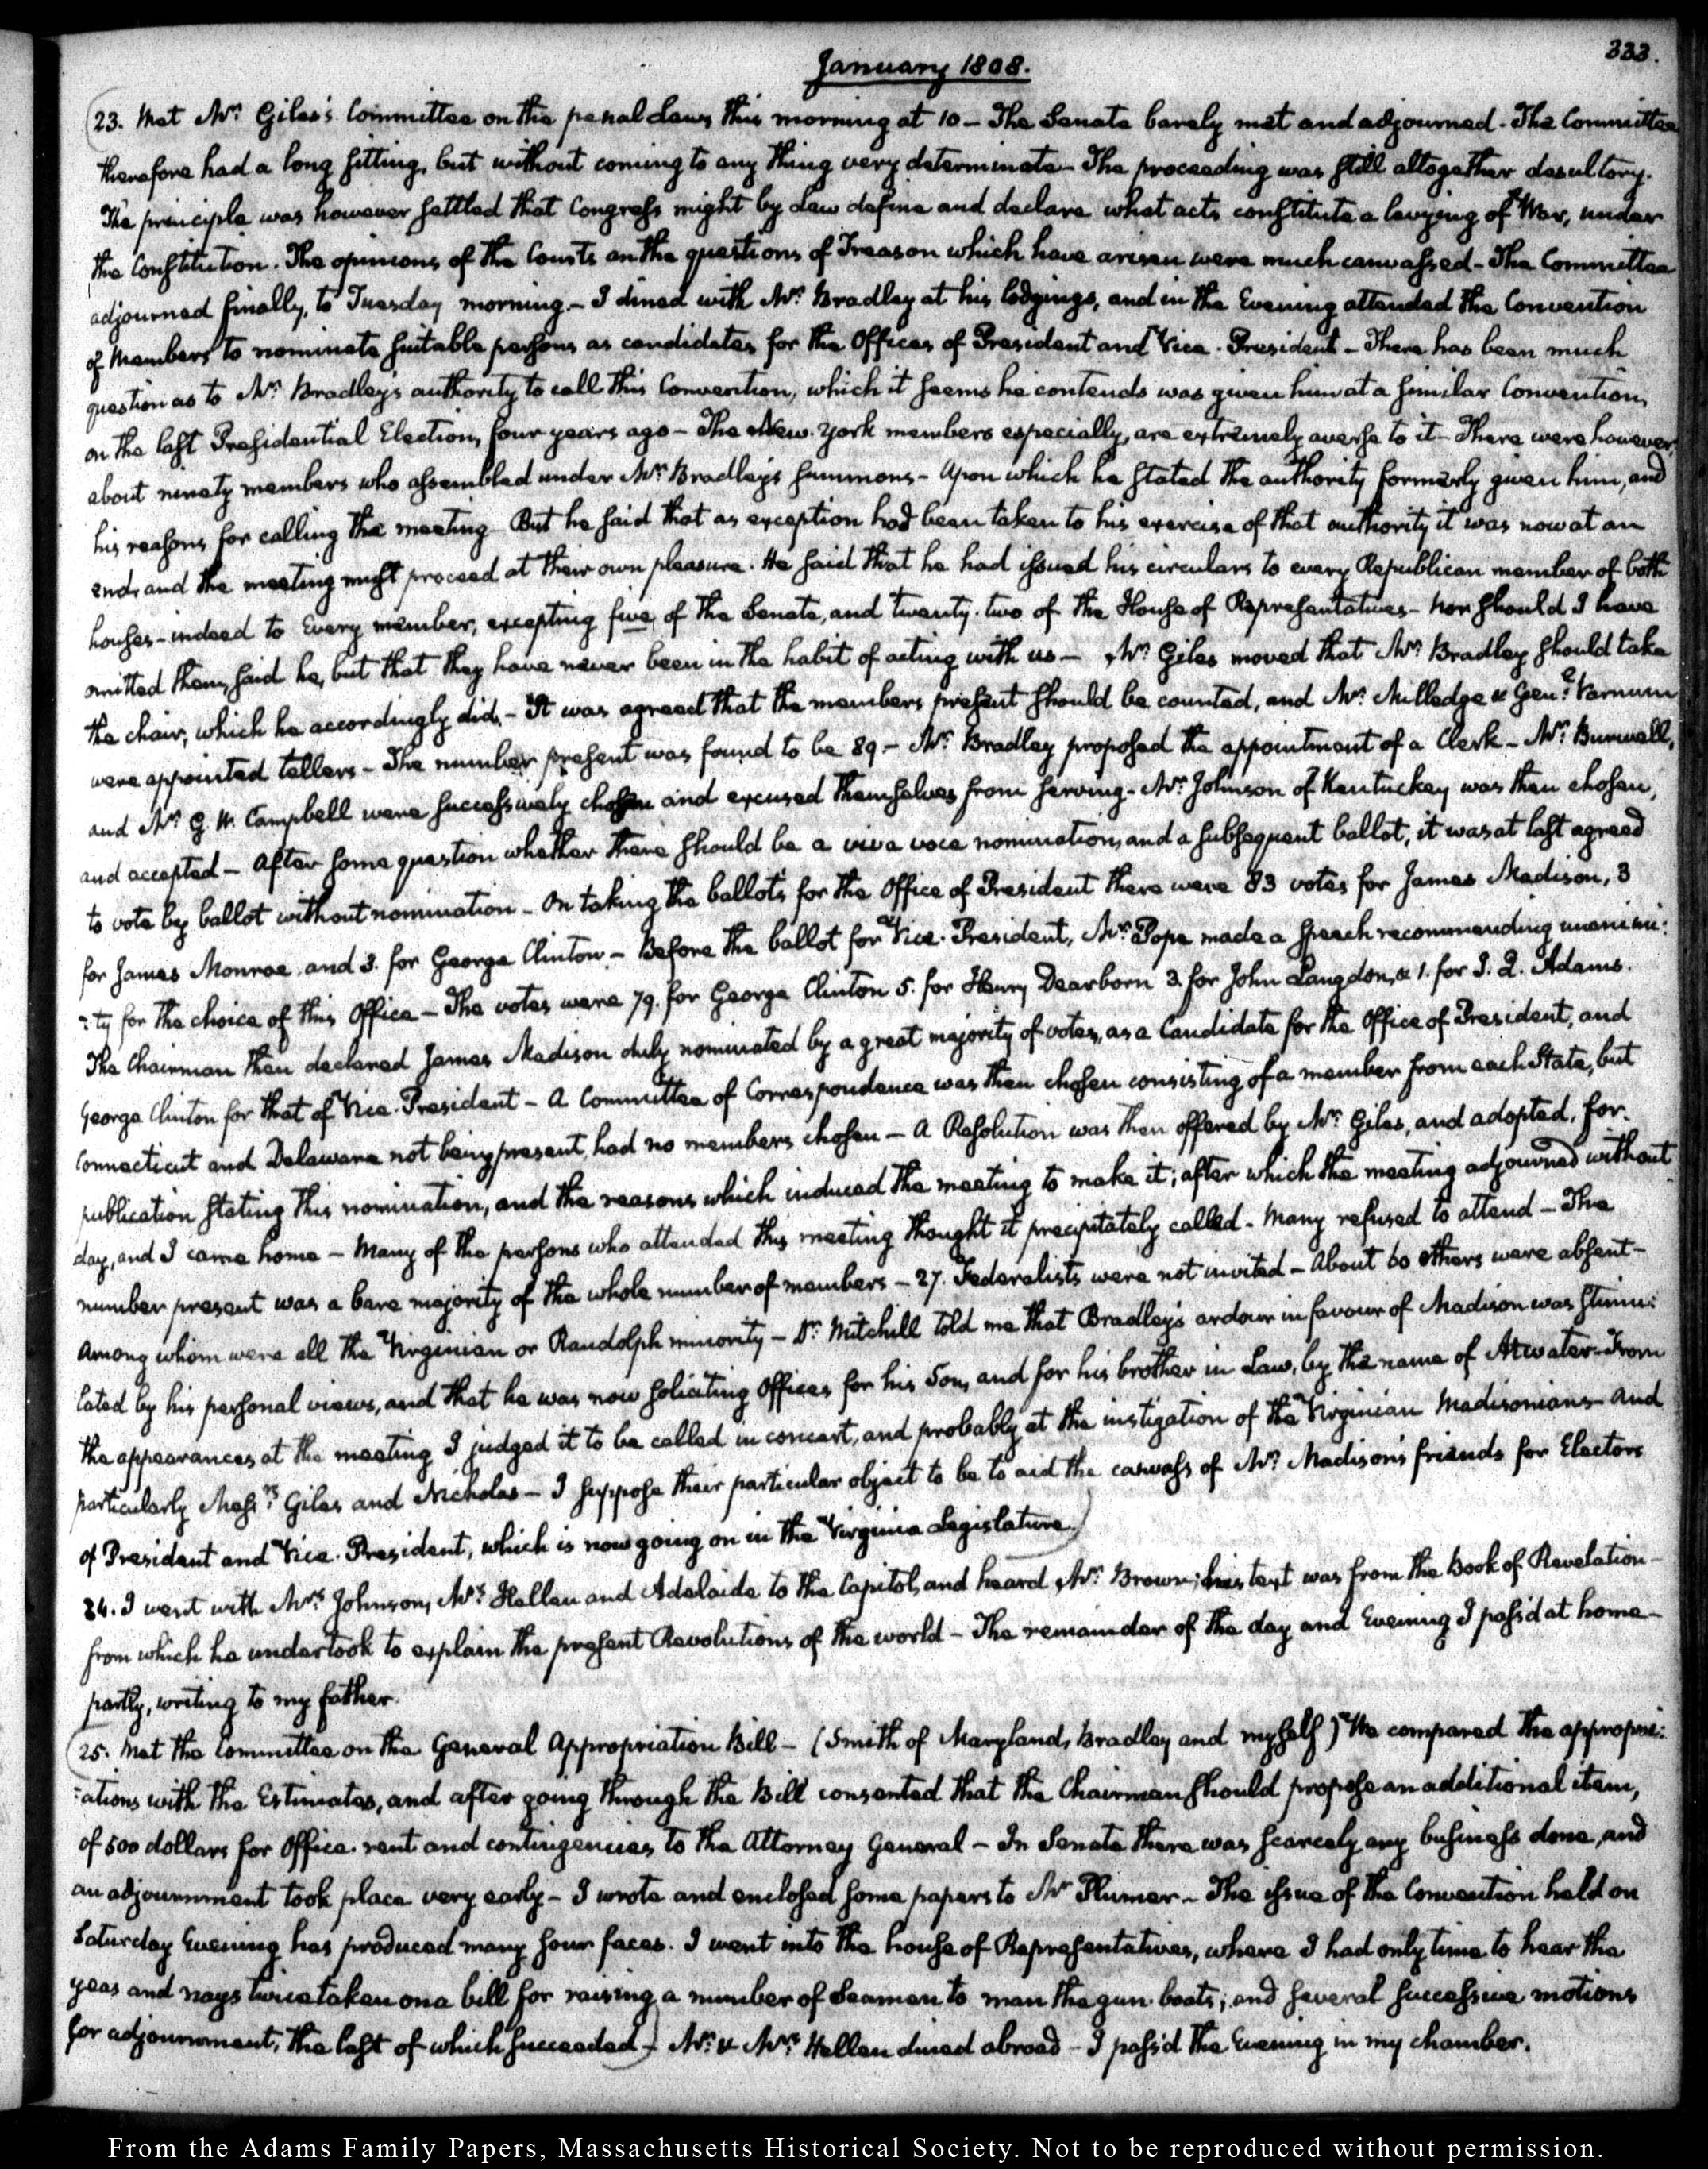 333.
January 1808.
23. Met Mr. Giles's Committee on the penal laws this morning at 10 - The Senate barely met and adjourned - The Committee
therefore had a long sitting, but without coming to any thing very determinate - The proceeding was still altogether desultory.
The principle was however settled that Congress might by Law define and declare what acts constitute a levying of War, under
the Constitution. The opinions of the Courts on the questions of Treason which have arisen were much canvassed - The Committee
adjourned finally, to Tuesday morning. - I dined with Mr. Bradley at his lodgings, and in the Evening attended the Convention
of Members to nominate suitable persons as candidates for the Offices of President and Vice-President - There has been much
question as to Mr. Bradley's authority to call this Convention, which it seems he contends was given him at a similar Convention,
on the last Presidential Election, four years ago - The New-York members especially, are extremely averse to it - There were however,
about ninety members who assembled under Mr. Bradley's summons - Upon which he stated the authority formerly given him, and
his reasons for calling the meeting - But he said that as exception had been taken to his exercise of that authority it was now at an
end, and the meeting might proceed at their own pleasure. He said that he had issued his circulars to every Republican member of both
houses - indeed to every member, excepting five, of the Senate, and twenty-two of the House of Representatives - nor should I have
omitted them, said he, but that they have never been in the habit of acting with us - Mr. Giles moved that Mr. Bradley should take
the chair, which he accordingly did. - It was agreed that the members present should be counted, and Mr. Milledge & Genl. Varnum
were appointed tellers - The number present was found to be 89 - Mr. Bradley proposed the appointment of a Clerk - Mr. Burwell,
and Mr. G. W. Campbell were successively chosen and excused themselves from serving - Mr. Johnson of Kentuckey was then chosen,
and accepted - After some question whether there should be a viva voce nomination, and a subsequent ballot, it was at last agreed
to vote by ballot without nomination - On taking the ballots for the Office of President there were 83 votes for James Madison, 3
for James Monroe and 3. for George Clinton - Before the ballot for Vice-President, Mr. Pope made a speech recommending unanimi:
:ty for the choice of this Office - The votes were 79. for George Clinton 5. for Henry Dearborn 3. for John Langdon, & 1. for J. Q. Adams.
The Chairman then declared James Madison duly nominated by a great majority of votes, as a Candidate for the Office of President, and
George Clinton for that of Vice-President - A Committee of Correspondence was then chosen consisting of a member from each State, but
Connecticut and Delaware not being present, had no members chosen - A Resolution was then offered by Mr. Giles, and adopted, for
publication stating this nomination, and the reasons which induced the meeting to make it; after which the meeting adjourned without
day, and I came home - Many of the persons who attended this meeting thought it precipitately called - Many refused to attend - The
number present was a bare majority of the whole number of members - 27. Federalists were not invited - About 60 others were absent -
Among whom were all the Virginian or Randolph minority - Dr. Mitchill told me that Bradley's ardour in favour of Madison was stimu:
lated by his personal views, and that he was now soliciting Offices for his Son, and for his brother in Law, by the name of Atwater - From
the appearances at the meeting I judged it to be called in concert, and probably at the instigation of the Virginian Madisonians - And
particularly Messrs. Giles and Nicholas - I suppose their particular object to be to aid the canvass of Mr. Madison's friends for Electors
of President and Vice-President, which is now going on in the Virginia Legislature.
24. I went with Mrs. Johnson, Mrs. Hellen and Adelaide to the Capitol, and heard Mr. Brown; his text was from the Book of Revelation -
from which he undertook to explain the present Revolutions of the world - The remainder of the day and Evening I pass'd at home -
partly, writing to my father.
25. Met the Committee on the General Appropriation Bill - (Smith of Maryland, Bradley and myself) We compared the appropri:
:ations with the Estimates, and after going through the Bill consented that the Chairman should propose an additional item,
of 500 dollars for Office-rent and contingencies to the Attorney General - In Senate there was scarcely any business done, and
an adjournment took place very early - I wrote and enclosed some papers to Mr. Plumer - The issue of the Convention held on
Saturday Evening has produced many sour faces. I went into the house of Representatives, where I had only time to hear the
yeas and nays twice taken on a bill for raising a number of Seamen to man the gun-boats; and several successive motions
for adjournment, the last of which succeeded - Mr. & Mrs. Hellen dined abroad - I pass'd the Evening in my chamber.
From the Adams Family Papers, Massachusetts Historical Society. Not to be reproduced without permission.